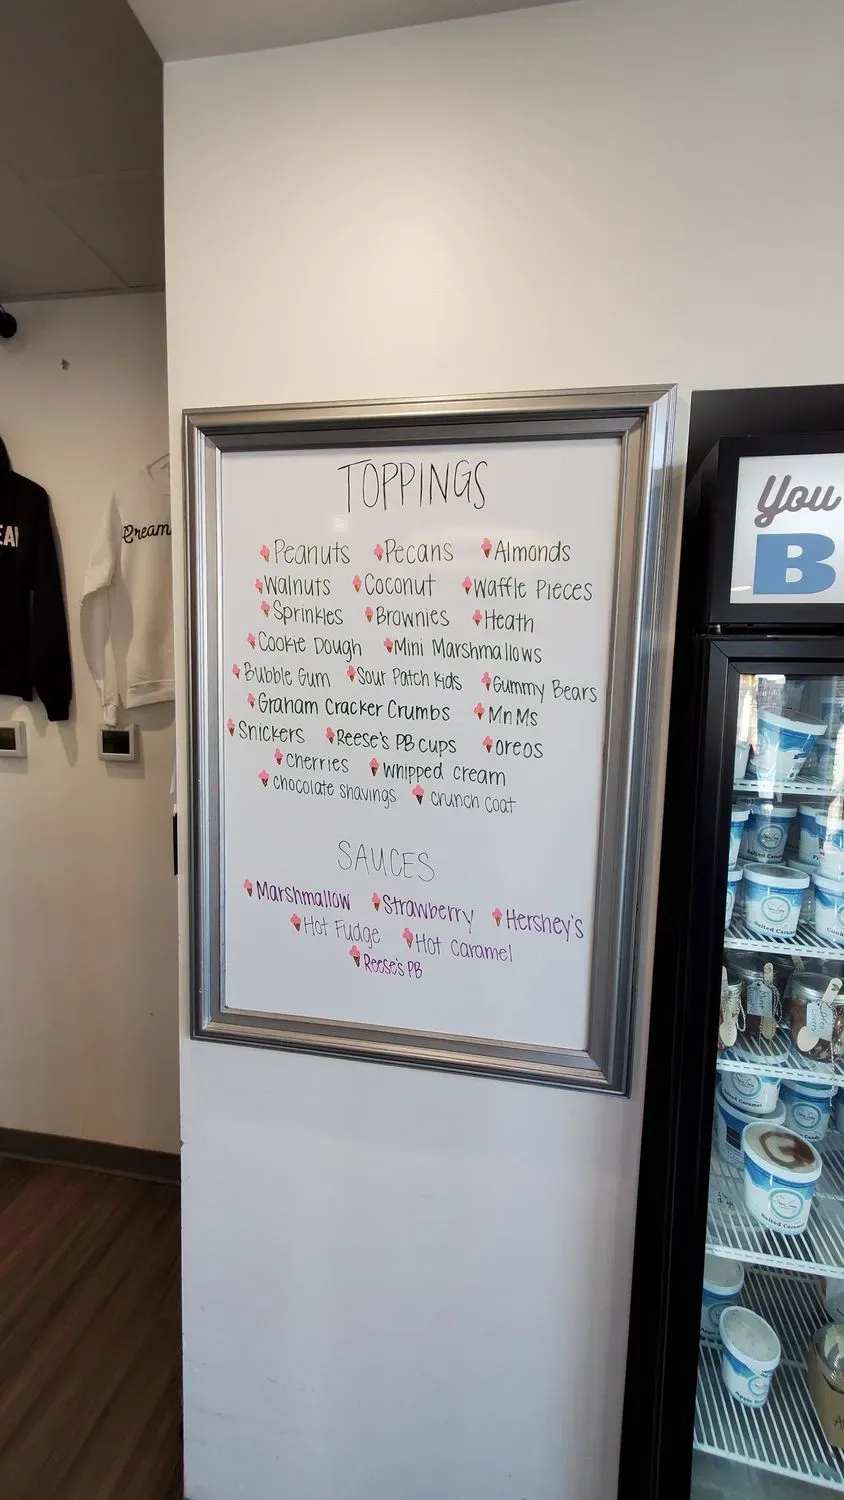 TOPPINGS
Peanuts Pecans Almonds
Walnuts Coconut Waffle Pieces
Sprinkles Brownies Heath
Cookie Dough Mini Marshmallows
Bubble Gum Sour Patch Kids Gummy Bears
Graham Cracker Crumbs MnMs
Snickers Reese's PB cups oreos
cherries whipped cream
chocolate shavings crunch coat
SAUCES
Marshmallow Strawberry Hershey's
Hot Fudge Hot Caramel
Reese's PB
Cream
You
B
Salted Caramel
Salted Caramel
Salted Caramel